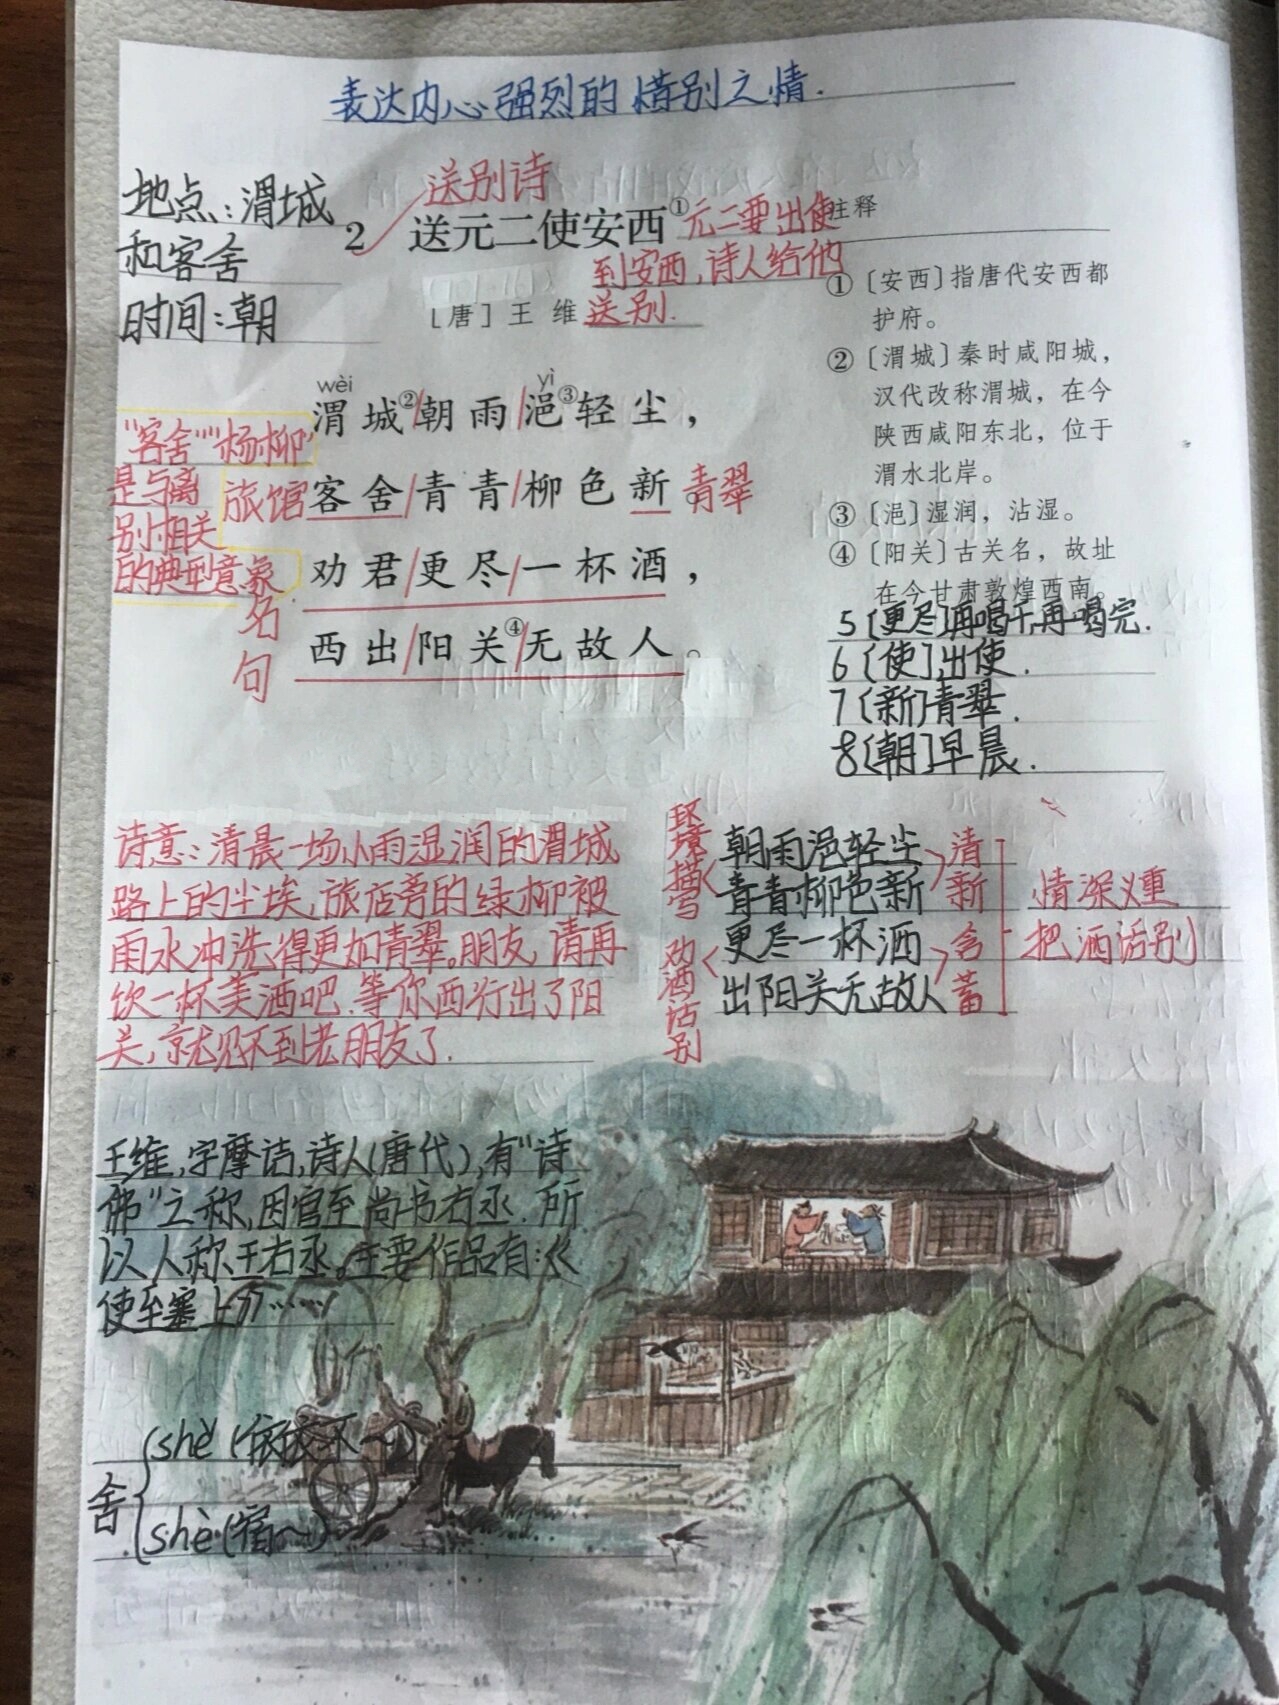 表达内心强烈的惜别之情.
地点:渭城
和客舍
时间:朝
送别诗
2 送元二使安西①
元二要出使
到安西,诗人给他
送别.
[唐] 王 维
wèi yì
渭城②朝雨浥③轻尘，
客舍青青柳色新。
劝君更尽一杯酒，
西出阳关④无故人。
旅馆
青翠
名句
“客舍”“杨柳”
是与离
别相关
的典型意象
注释
①〔安西〕指唐代安西都
护府。
②〔渭城〕秦时咸阳城，
汉代改称渭城，在今
陕西咸阳东北，位于
渭水北岸。
③〔浥〕湿润，沾湿。
④〔阳关〕古关名，故址
在今甘肃敦煌西南。
5〔更尽〕再喝干,再喝完.
6〔使〕出使.
7〔新〕青翠.
8〔朝〕早晨.
诗意:清晨一场小雨湿润的渭城
路上的尘埃,旅店旁的绿柳被
雨水冲洗得更加青翠。朋友,请再
饮一杯美酒吧.等你西行出了阳
关,就见不到老朋友了.
环境描写
朝雨浥轻尘
青青柳色新
清新
劝酒话别
更尽一杯酒
出阳关无故人
含蓄
情深义重
把酒话别
王维,字摩诘,诗人(唐代),有“诗
佛”之称,因官至尚书右丞.所
以人称王右丞。主要作品有:
使至塞上
舍
shě(依依不~)
shè(宿~)